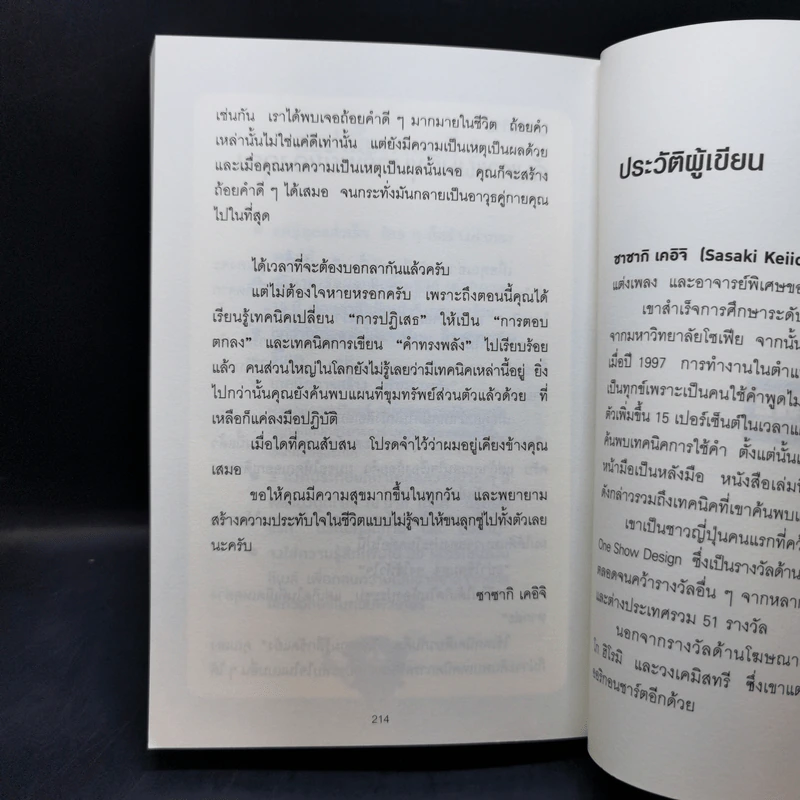 เช่นกัน เราได้พบเจอถ้อยคำดี ๆ มากมายในชีวิต ถ้อยคำ
เหล่านั้นไม่ใช่แค่ดีเท่านั้น แต่ยังมีความเป็นเหตุเป็นผลด้วย
และเมื่อคุณหาความเป็นเหตุเป็นผลนั้นเจอ คุณก็จะสร้าง
ถ้อยคำดี ๆ ได้เสมอ จนกระทั่งมันกลายเป็นอาวุธคู่กายคุณ
ไปในที่สุด
ได้เวลาที่จะต้องบอกลากันแล้วครับ
แต่ไม่ต้องใจหายหรอกครับ เพราะถึงตอนนี้คุณได้
เรียนรู้เทคนิคเปลี่ยน "การปฏิเสธ" ให้เป็น "การตอบ
ตกลง" และเทคนิคการเขียน "คำทรงพลัง" ไปเรียบร้อย
แล้ว คนส่วนใหญ่ในโลกยังไม่รู้เลยว่ามีเทคนิคเหล่านี้อยู่ ยิ่ง
ไปกว่านั้นคุณยังค้นพบแผนที่ขุมทรัพย์ส่วนตัวแล้วด้วย ที่
เหลือก็แค่ลงมือปฏิบัติ
เมื่อใดที่คุณสับสน โปรดจำไว้ว่าผมอยู่เคียงข้างคุณ
เสมอ
ขอให้คุณมีความสุขมากขึ้นในทุกวัน และพยายาม
สร้างความประทับใจในชีวิตแบบไม่รู้จบให้ขนลุกซู่ไปทั้งตัวเลย
นะครับ
ซาซากิ เคอิจิ
214
ประวัติผู้เขียน
ซาซากิ เคอิจิ (Sasaki Keiic
แต่งเพลง และอาจารย์พิเศษขอ
เขาสำเร็จการศึกษาระดับ
จากมหาวิทยาลัยโซเฟีย จากนั้น
เมื่อปี 1997 การทำงานในตำแ
เป็นทุกข์เพราะเป็นคนใช้คำพูดไม่
ตัวเพิ่มขึ้น 15 เปอร์เซ็นต์ในเวลาแค่
ค้นพบเทคนิคการใช้คำ ตั้งแต่นั้นเ
หน้ามือเป็นหลังมือ หนังสือเล่มนี้
ดังกล่าวรวมถึงเทคนิคที่เขาค้นพบเ
เขาเป็นชาวญี่ปุ่นคนแรกที่คว้
One Show Design ซึ่งเป็นรางวัลด้าน
ตลอดจนคว้ารางวัลอื่น ๆ จากหลาก
และต่างประเทศรวม 51 รางวัล
นอกจากรางวัลด้านโฆษณา
โก ฮิโรมิ และวงเคมิสทรี ซึ่งเขาแต่
ออริกอนชาร์ตอีกด้วย